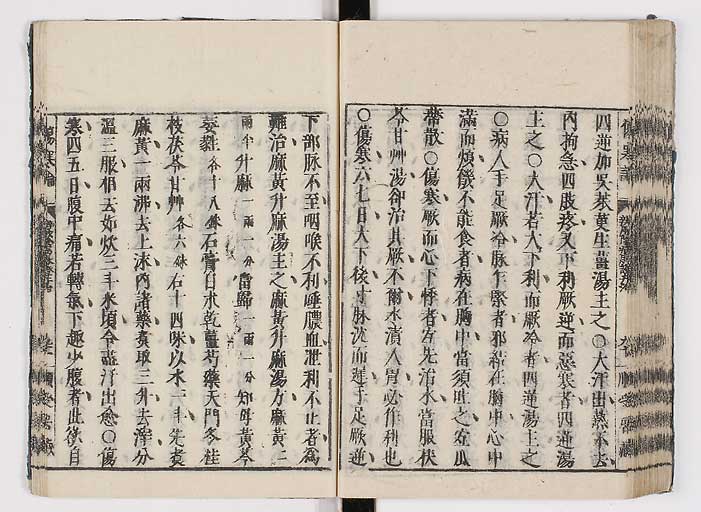 四逆加吳茱萸生薑湯主之○大汗出熱不去
內拘急四肢疼又下利厥逆而惡寒者四逆湯
主之○大汗若大下利而厥冷者四逆湯主之
○病人手足厥冷脉乍緊者邪結在胸中心中
滿而煩饑不能食者病在胸中當須吐之宜瓜
蒂散○傷寒厥而心下悸者宜先治水當服茯
苓甘艸湯卻治其厥不爾水漬入胃必作利也
○傷寒六七日大下後寸脉沈而遲手足厥逆
下部脉不至咽喉不利唾膿血泄利不止者為
難治麻黃升麻湯主之麻黃升麻湯方麻黃二
兩半升麻一兩一分當歸一兩一分知母黃芩
萎蕤各十八銖石膏白朮乾薑芍藥天門冬桂
枝茯苓甘艸各六銖右十四味以水一斗先煮
麻黃一兩沸去上沫內諸藥煮取三升去滓分
溫三服相去如炊三斗米頃令盡汗出愈○傷
寒四五日腹中痛若轉氣下趣少腹者此欲自
傷寒論